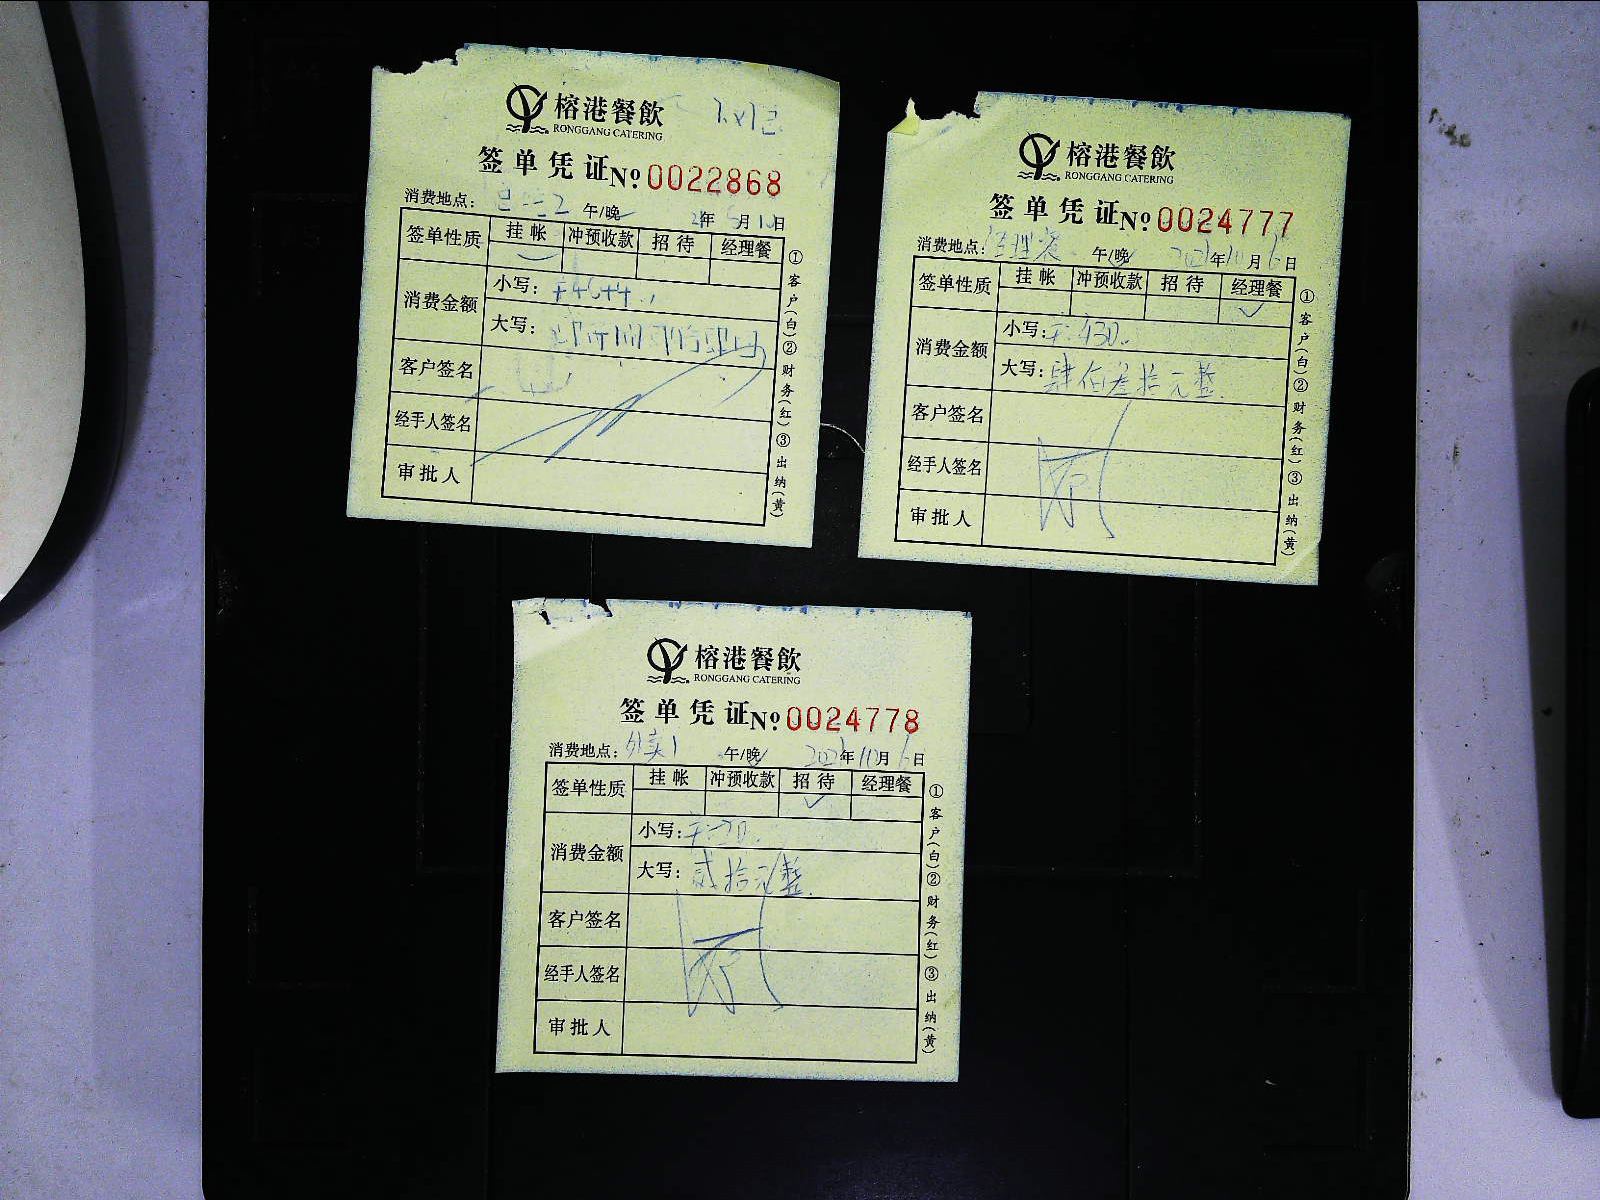 榕港餐飲
RONGGANG CATERING
签单凭证 No 0022868
消费地点: 午/晚 年 月 日
签单性质 挂帐 冲预收款 招待 经理餐
消费金额 小写:
大写:
客户签名
经手人签名
审批人
①客户(白)②财务(红)③出纳(黄)
榕港餐飲
RONGGANG CATERING
签单凭证 No 0024777
消费地点: 经理餐 午/晚 2021年11月6日
签单性质 挂帐 冲预收款 招待 经理餐
消费金额 小写: 430.
大写: 肆佰叁拾元整.
客户签名
经手人签名
审批人
①客户(白)②财务(红)③出纳(黄)
榕港餐飲
RONGGANG CATERING
签单凭证 No 0024778
消费地点: 外卖1 午/晚 2021年11月6日
签单性质 挂帐 冲预收款 招待 经理餐
消费金额 小写: 20.
大写: 贰拾元整.
客户签名
经手人签名
审批人
①客户(白)②财务(红)③出纳(黄)